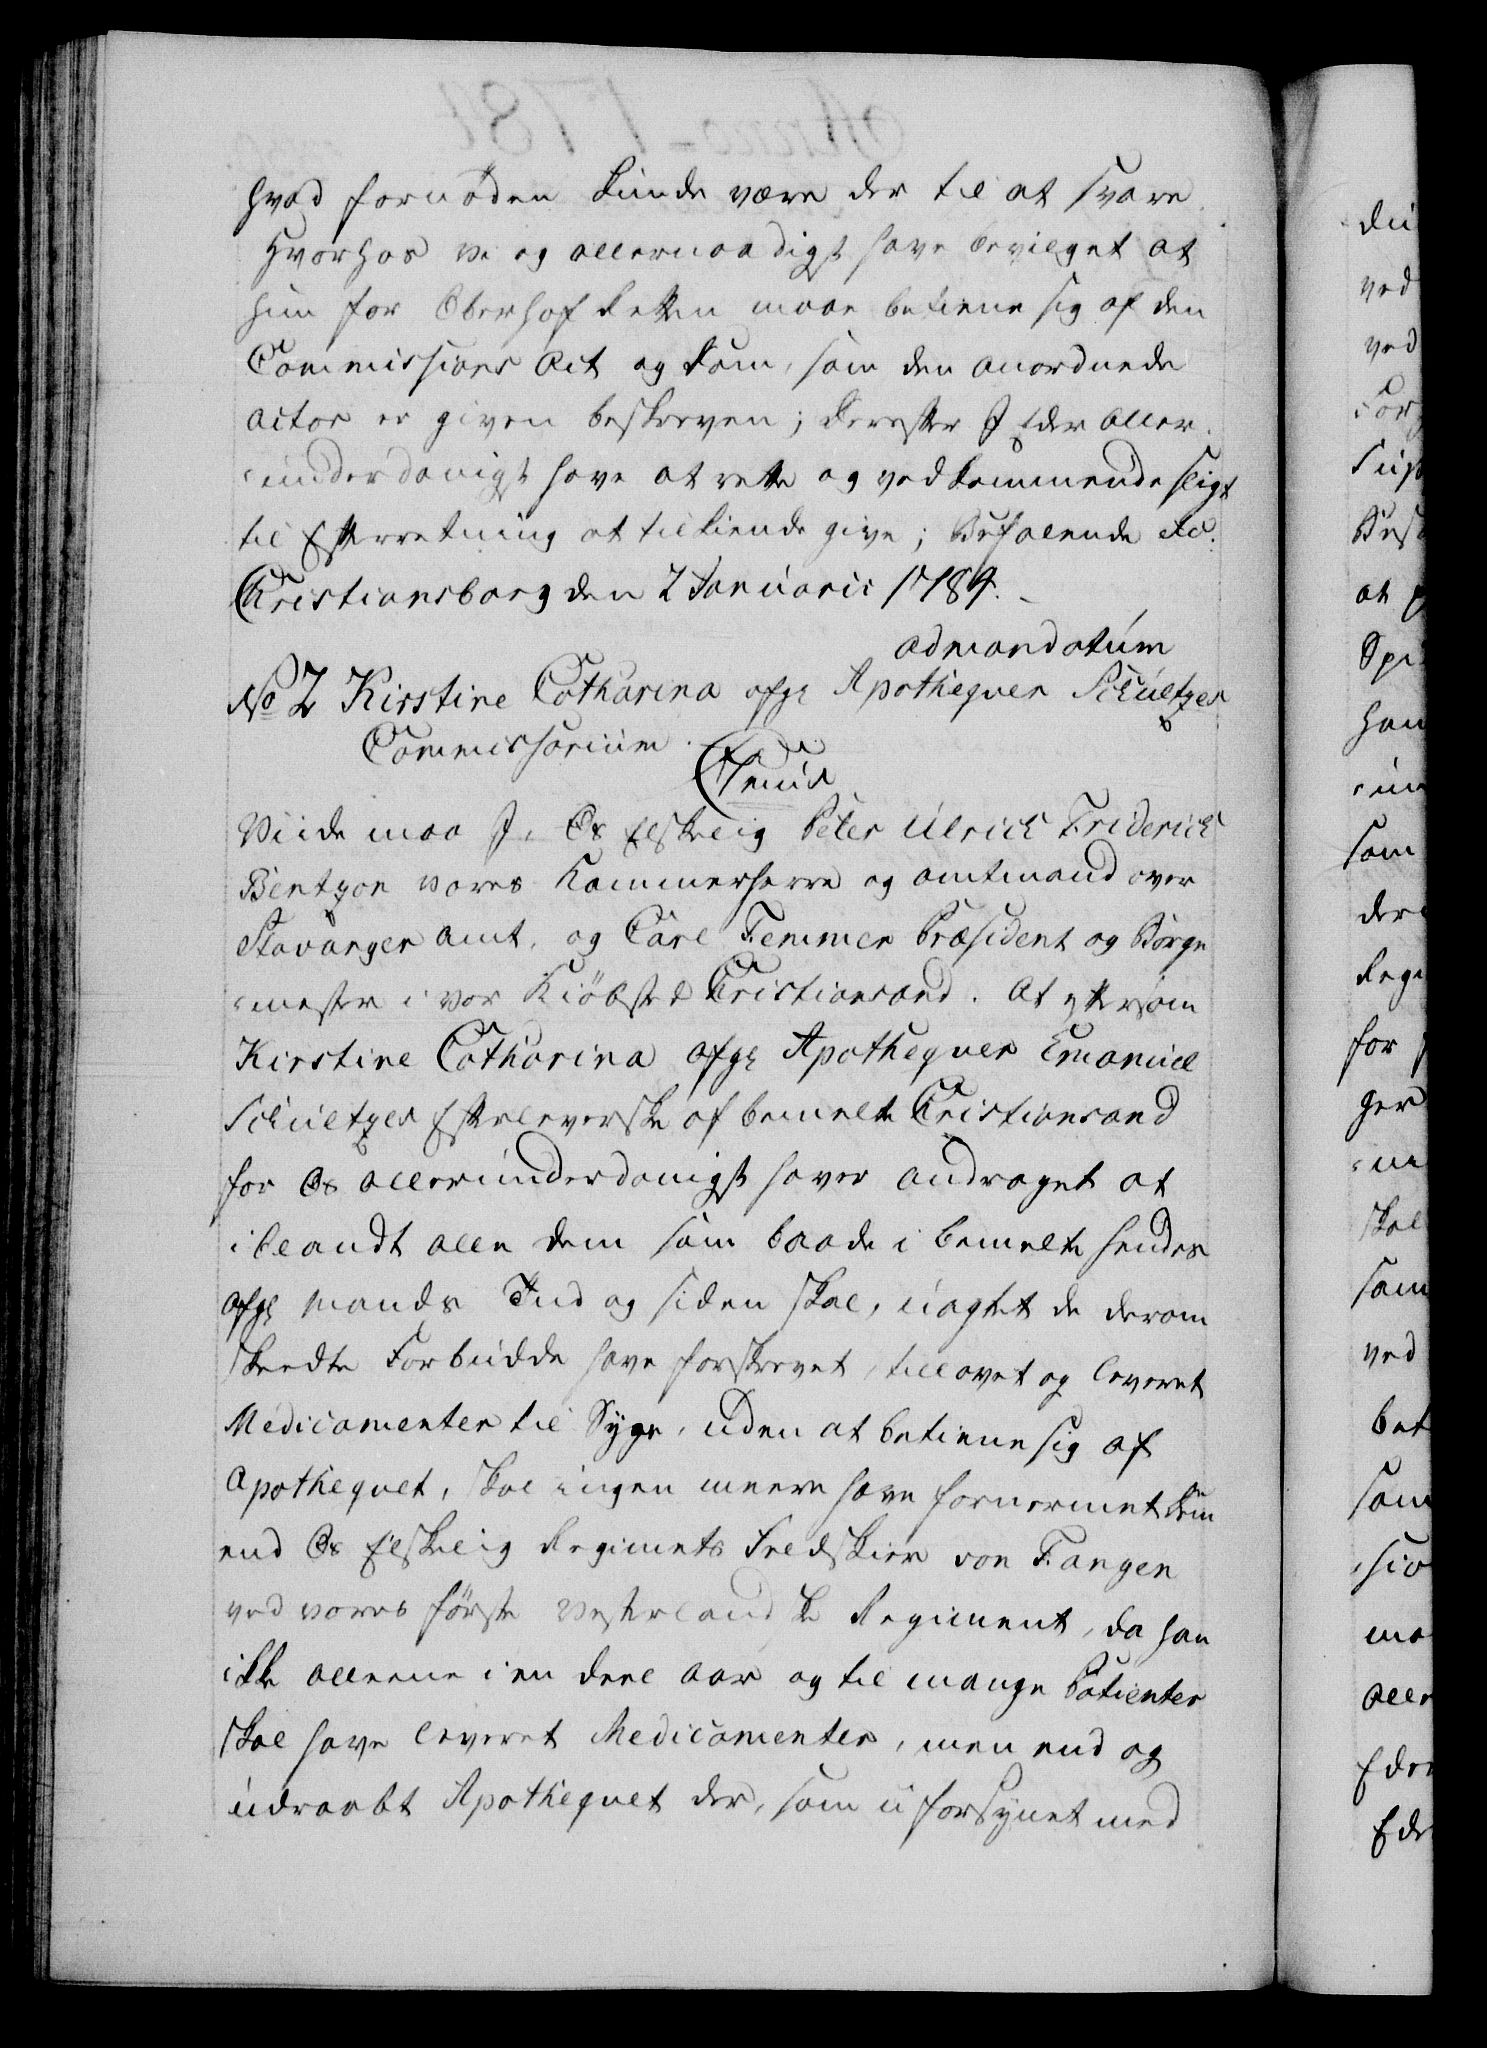 hvad fornøden kunde være der til at svare
Hvorhos vi og allernaadigst have bevilget at
hun for Oberhof Retten maae betiene sig af den
Commissions Act og Dom, som den anordnede
Actor er given beskreven; Derefter I Eder aller-
-underdanigst have at rette og vedkommende sligt
til Efterretning at tilkiende give; Befalende etc.
Christiansborg den 2 Januarii 1784.
ad mandatum
No 2 Kirstine Catharina afgl Apothequer Schultzes
Commissorium.
C7mus
Viide maa I, Os Elskelig Peter Ulrich Friderich
Bentzon vores Kammerherre og Amtmand over
Stavanger Amt, og Carl Femmer Præsident og Borge
-mester i vor Kiöbsted Christiansand. At eftersom
Kirstine Catharina afgl Apothequer Emanuel
Schultzes Efterleverske af bemelte Christiansand
for Os allerunderdanigst haver andraget at
iblandt alle dem som baade i bemelte hendes
afgl Mands Tid og siden skal, uagtet de derom
skeedte Forbudde have forskrevet, tillavet og leveret
Medicamenter til Syge, uden at betiene sig af
Apothequet, skal ingen meere have fornermet dem
end Os Elskelig Regiments Feldskier von Fangen
ved vores förste Vesterlandske Regiment, da han
ikke alleene i en deel Aar og til mange Patienter
skal have leveret Medicamenter, men end og
udraabt Apothequet der, som uforsynet med